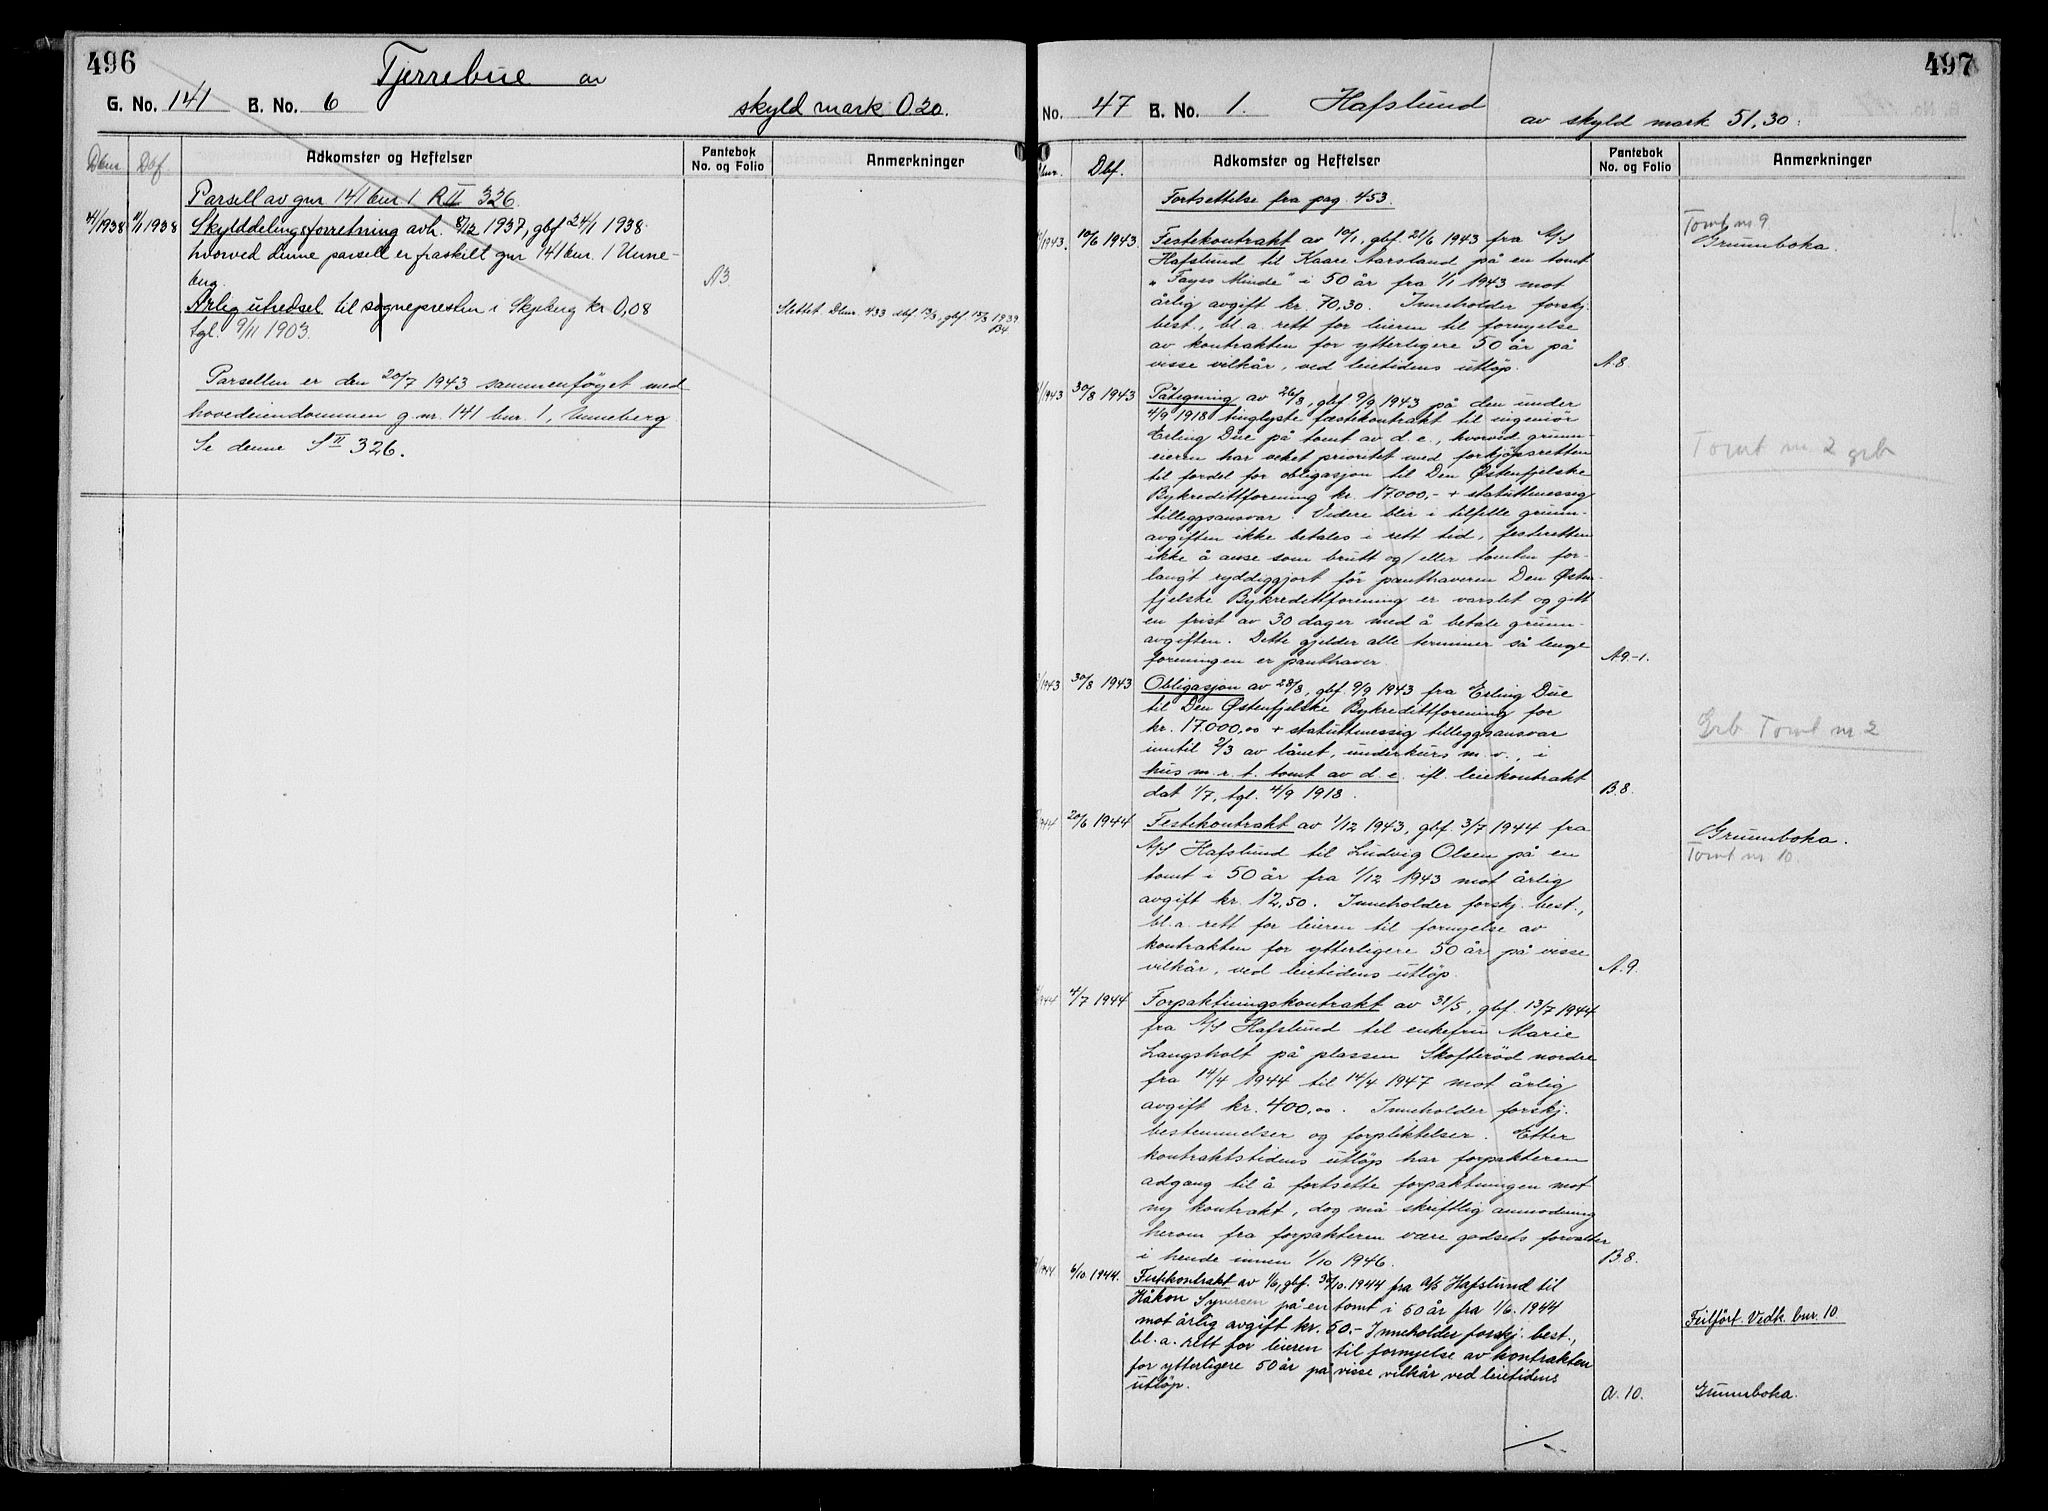 496
Tjerrebue av
G. No. 141 B. No. 6
skyld mark 0.20.
Dbnr. Dbf.
Adkomster og Heftelser
Pantebok No. og Folio
Anmerkninger
Parsell av gnr 141 bnr 1 R II 326.
/1938 11/1 1938 Skylddelingsforretning avh. /12 1937, gbf 24/1 1938
hvorved denne parsell er fraskilt gnr 141 bnr. 1 Unne-
berg. A3
Årleg utredsel til sognepresten i Skjeberg kr 0,08
tgl. 9/11 1903.
Slettet Dbnr. 433 dbf 13/3, gbf 15/3 1939
B4
Parsellen er den 20/7 1943 sammenføyet med
hovedeiendommen g nr. 141 bnr. 1, Unneberg
Se denne S II 326.
497
No. 47 B. No. 1. Hafslund
av skyld mark 51,30.
Dbnr. Dbf.
Adkomster og Heftelser
Pantebok No. og Folio
Anmerkninger
Fortsettelse fra pag. 453.
/1943. 10/6 1943. Festekontrakt av 10/1, gbf. 21/6 1943 fra A/S
Hafslund til Kaare Aarstand på en tomt
"Fayes Minde" i 50 år fra 1/1 1943 mot
årlig avgift kr. 70,30. Inneholder forskj.
best., bl. a. rett for leieren til fornyelse
av kontrakten for ytterligere 50 år på
visse vilkår, ved leietidens utløp. A.8
Tomt nr 9
Grunnboka.
/1943 30/8 1943 Påtegning av 26/8, gbf 9/9 1943 på den under
4/9 1918 tinglyste festekontrakt til ingeniør
Erling Due på tomt av d. e., hvorved grunn-
eieren har veket prioritet med forkjøpsretten
til fordel for obligasjon til Den Østenfjelske
Bykredittforening kr. 17000,- + statuttmessig
tilleggsansvar. Videre blir i tilfelle grunn-
avgiften ikke betales i rett tid, festeretten
ikke å anse som brutt og/eller tomten for-
langt ryddiggjort før panthaveren Den Østen-
fjelske Bykredittforening er varslet og gitt
en frist av 30 dager med å betale grunn-
avgiften. Dette gjelder alle terminer så lenge
foreningen er panthaver. A9-1.
Tomt nr. 2 grb
/1943 30/8 1943 Obligasjon av 28/8, gbf. 9/9 1943 fra Erling Due
til Den Østenfjelske Bykredittforening for
kr. 17.000,00 + statuttmessig tilleggsansvar
inntil 2/3 av lånet, underkurs m. v., i
hus m. r. t. tomt av d. e. ifl. leiekontrakt
dat 1/7, tgl. 4/9 1918. B.8.
Grb Tomt nr 2
/1944 20/6 1944 Festekontrakt av 1/12 1943, gbf. 3/7 1944 fra
A/S Hafslund til Ludvig Olsen på en
tomt i 50 år fra 1/12 1943 mot årlig
avgift kr. 12,50. Inneholder forskj. best.,
bl. a. rett for leieren til fornyelse av
kontrakten for ytterligere 50 år på visse
vilkår, ved leietidens utløp. A.9.
Grunnboka.
Tomt nr 10.
/1944 4/7 1944 Forpaktningskontrakt av 31/5, gbf. 13/7 1944
fra A/S Hafslund til enkefru Marie
Langsholt på plassen Skofterød nordre
fra 14/4 1944 til 14/4 1947 mot årlig
avgift kr. 400,00. Inneholder forskj.
bestemmelser og forpliktelser. Etter
kontraktstidens utløp har forpakteren
adgang til å fortsette forpaktningen mot
ny kontrakt, dog må skriftlig anmodning
herom fra forpakteren være godsets forvalter
i hende innen 1/10 1946. B.8.
/1944 6/10. 1944. Festekontrakt av 1/6, gbf. /10. 1944 fra A/S Hafslund til
Håkon Syversen på en tomt i 50 år fra 1/6. 1944
mot årlig avgift kr. 50.- Inneholder forskj. best.,
bl. a. rett for leieren til fornyelse av kontrakten
for ytterligere 50 år på visse vilkår ved leietidens
utløp. A. 10.
Feilført. Vedk. bnr. 10
Grunnboka.